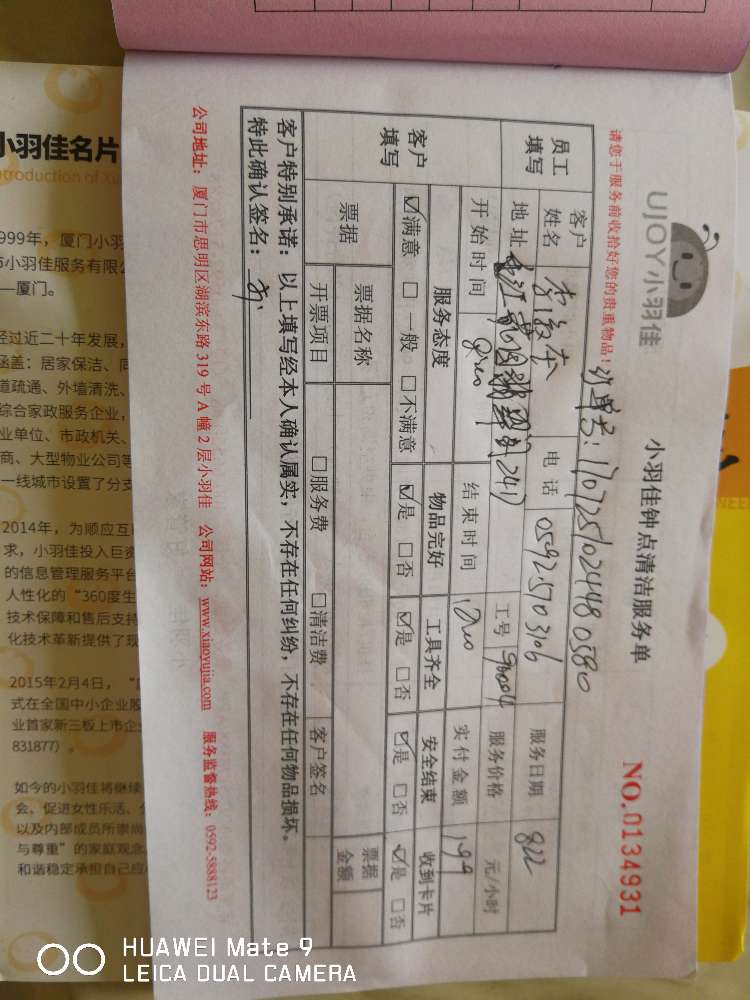 UJOY小羽佳
小羽佳钟点清洁服务单
NO.0134931
请您于服务前收拾好您的贵重物品!
员工填写
客户姓名
电话
0592.5703106
服务日期
822
地址
241)
工号
服务价格
元/小时
开始时间
结束时间
实付金额
199
客户填写
服务态度
物品完好
工具齐全
安全结束
收到卡片
☑满意 □一般 □不满意
☑是 □否
☑是 □否
☑是 □否
☑是 □否
票据
票据名称
票据金额
开票项目
□服务费
□清洁费
客户签名
客户特别承诺:以上填写经本人确认属实,不存在任何纠纷,不存在任何物品损坏。
特此确认签名:
公司地址:厦门市思明区湖滨东路319号A幢2层小羽佳 公司网站:www.xiaoyujia.com 服务监督热线:0592-5888123
小羽佳名片
999年,厦门小羽
市小羽佳服务有限公
——厦门。
经过近二十年发展,
涵盖:居家保洁、
道疏通、外墙清洗、
综合家政服务企业,
业单位、市政机关、
商、大型物业公司等
一线城市设置了分支
2014年,为顺应互
求,小羽佳投入巨资
的信息管理服务平台
人性化的"360度生
技术保障和售后支持
化技术革新提供了现
2015年2月4日,"
式在全国中小企业股
业首家新三板上市企
831877)。
如今的小羽佳将继续
会。促进女性乐活、
以及内部成员所崇尚
与尊重"的家庭观念
和谐稳定承担自己应
HUAWEI Mate 9
LEICA DUAL CAMERA